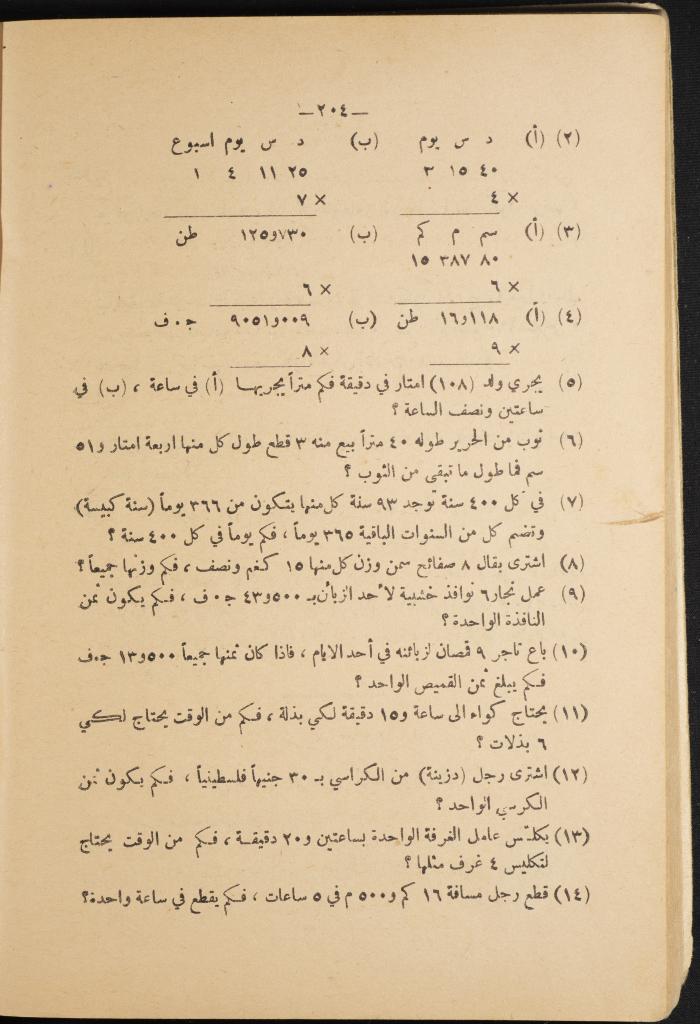 —٢٠٤—
(٢) (أ) د س يوم (ب) د س يوم اسبوع
٤٠ ١٥ ٣ ٢٥ ١١ ٤ ١
× ٤ × ٧
(٣) (أ) سم م كم (ب) ٧٣٠و١٢٥ طن
٨٠ ٣٨٧ ١٥
× ٦ × ٦
(٤) (أ) ١١٨و١٦ طن (ب) ٠٠٩و٩٠٥١ ج.ف
× ٩ × ٨
(٥) يجري ولد (١٠٨) امتار في دقيقة فكم متراً يجريها (أ) في ساعة ، (ب) في
ساعتين ونصف الساعة ؟
(٦) ثوب من الحرير طوله ٤٠ متراً بيع منه ٣ قطع طول كل منها اربعة امتار و٥١
سم فما طول ما تبقى من الثوب ؟
(٧) في كل ٤٠٠ سنة توجد ٩٣ سنة كل منها يتكون من ٣٦٦ يوماً (سنة كبيسة)
وتضم كل من السنوات الباقية ٣٦٥ يوماً ، فكم يوماً في كل ٤٠٠ سنة ؟
(٨) اشترى بقال ٨ صفائح سمن وزن كل منها ١٥ كغم ونصف ، فكم وزنها جميعاً ؟
(٩) عمل نجار ٦ نوافذ خشبية لأحد الزبائن بـ ٥٠٠و٤٣ ج.ف ، فكم يكون ثمن
النافذة الواحدة ؟
(١٠) باع تاجر ٩ قمصان لزبائنه في أحد الايام ، فاذا كان ثمنها جميعاً ٥٠٠و١٣ ج.ف
فكم يبلغ ثمن القميص الواحد ؟
(١١) يحتاج كواء الى ساعة و١٥ دقيقة لكي بذلة ، فكم من الوقت يحتاج لكي
٦ بذلات ؟
(١٢) اشترى رجل (دزينة) من الكراسي بـ ٣٠ جنيهاً فلسطينياً ، فكم يكون ثمن
الكرسي الواحد ؟
(١٣) يكلّس عامل الغرفة الواحدة بساعتين و٢٠ دقيقة ، فكم من الوقت يحتاج
لتكليس ٤ غرف مثلها ؟
(١٤) قطع رجل مسافة ١٦ كم و٥٠٠ م في ٥ ساعات ، فكم يقطع في ساعة واحدة؟